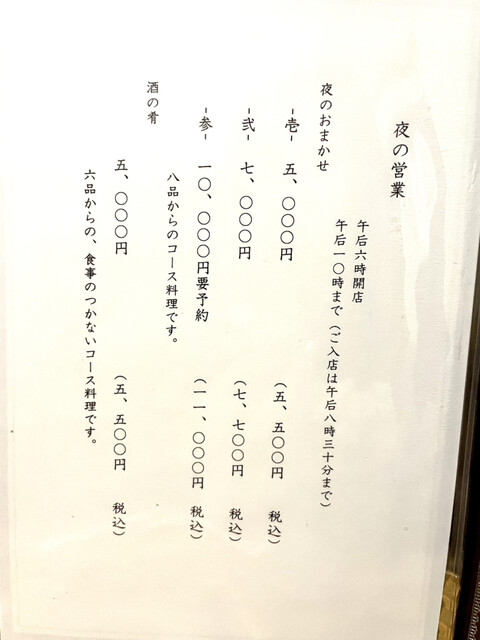 夜の営業
午后六時開店
午后一〇時まで（ご入店は午后八時三十分まで）
夜のおまかせ
-壱- 五、〇〇〇円 （五、五〇〇円 税込）
-弐- 七、〇〇〇円 （七、七〇〇円 税込）
-参- 一〇、〇〇〇円要予約 （一一、〇〇〇円 税込）
八品からのコース料理です。
酒の肴
五、〇〇〇円 （五、五〇〇円 税込）
六品からの、食事のつかないコース料理です。